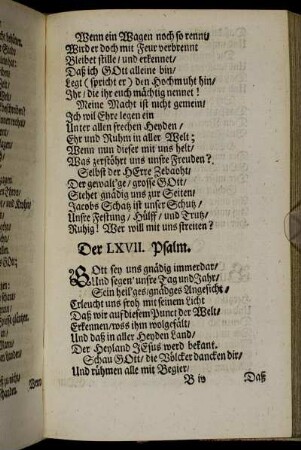 Wenn ein Wagen noch so rennt/
Wird er doch mit Feur verbrennt
Bleibet stille/ und erkennet/
Daß ich GOtt alleine bin/
Legt (spricht er) den Hochmuht hin/
Ihr/ die ihr euch mächtig nennet!
Meine Macht ist nicht gemein/
Ich wil Ehre legen ein
Unter allen frechen Heyden/
Ehr und Ruhm in aller Welt;
Wenn nun dieser mit uns helt/
Was zerstöhrt uns unsre Freuden?
Selbst der HErre Zebaoht/
Der gewalt'ge/ grosse GOtt/
Stehet gnädig uns zur Seiten/
Jacobs Schatz ist unser Schutz/
Unsre Festung/ Hülff/ und Trutz/
Ruhig! Wer will mit uns streiten?
Der LXVII. Psalm.
GOtt sey uns gnädig immerdar/
Und segen' unsre Tag und Jahr/
Sein heil'ges/ gnädges Angesicht/
Erleucht uns froh mit seinem Licht
Daß wir auf diesem Punct der Welt/
Erkennen/ wos ihm wolgefält/
Und daß in aller Heyden Land/
Der Heyland JEsus werd bekant.
Schau GOtt/ die Völcker dancken dir/
Und rühmen alle mit Begier/
B iv Daß